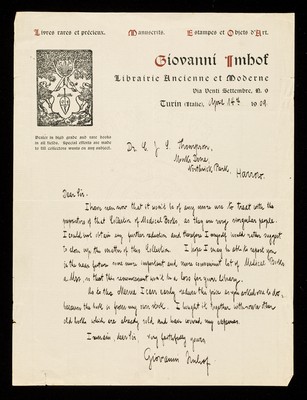 Livres rares et précieux. Manuscrits. Estampes et Objets d'Art.
Giovanni Imhof
Librairie Ancienne et Moderne
Via Venti Settembre, N. 9
Turin (Italie), April 1909
Dealer in high grade and rare books
in all fields. Special efforts are made
to fill collectors wants on any subject.
Dr. C. J. S. Thompson,
Northwick Park,
Harrow.
Dear Sir.
I have seen now that it would be of any more use to treat with the
proprietors of that Collection of Medical Books, as they are very singular people.
I could not obtain any further reduction and therefore I myself would rather suggest
to close up the matter of this Collection. I hope I may be able to report you
in the near future some more important and more convenient lot of Medical Books
a Mss, so that this renouncement would be a loss for your library.
As to the Herone I can easily reduce the price as you asked me to do,
because the book is from my own stock. I bought it together with some other
old books which are already sold and have covered my expenses.
I remain, dear Sir very faithfully
Giovanni Imhof